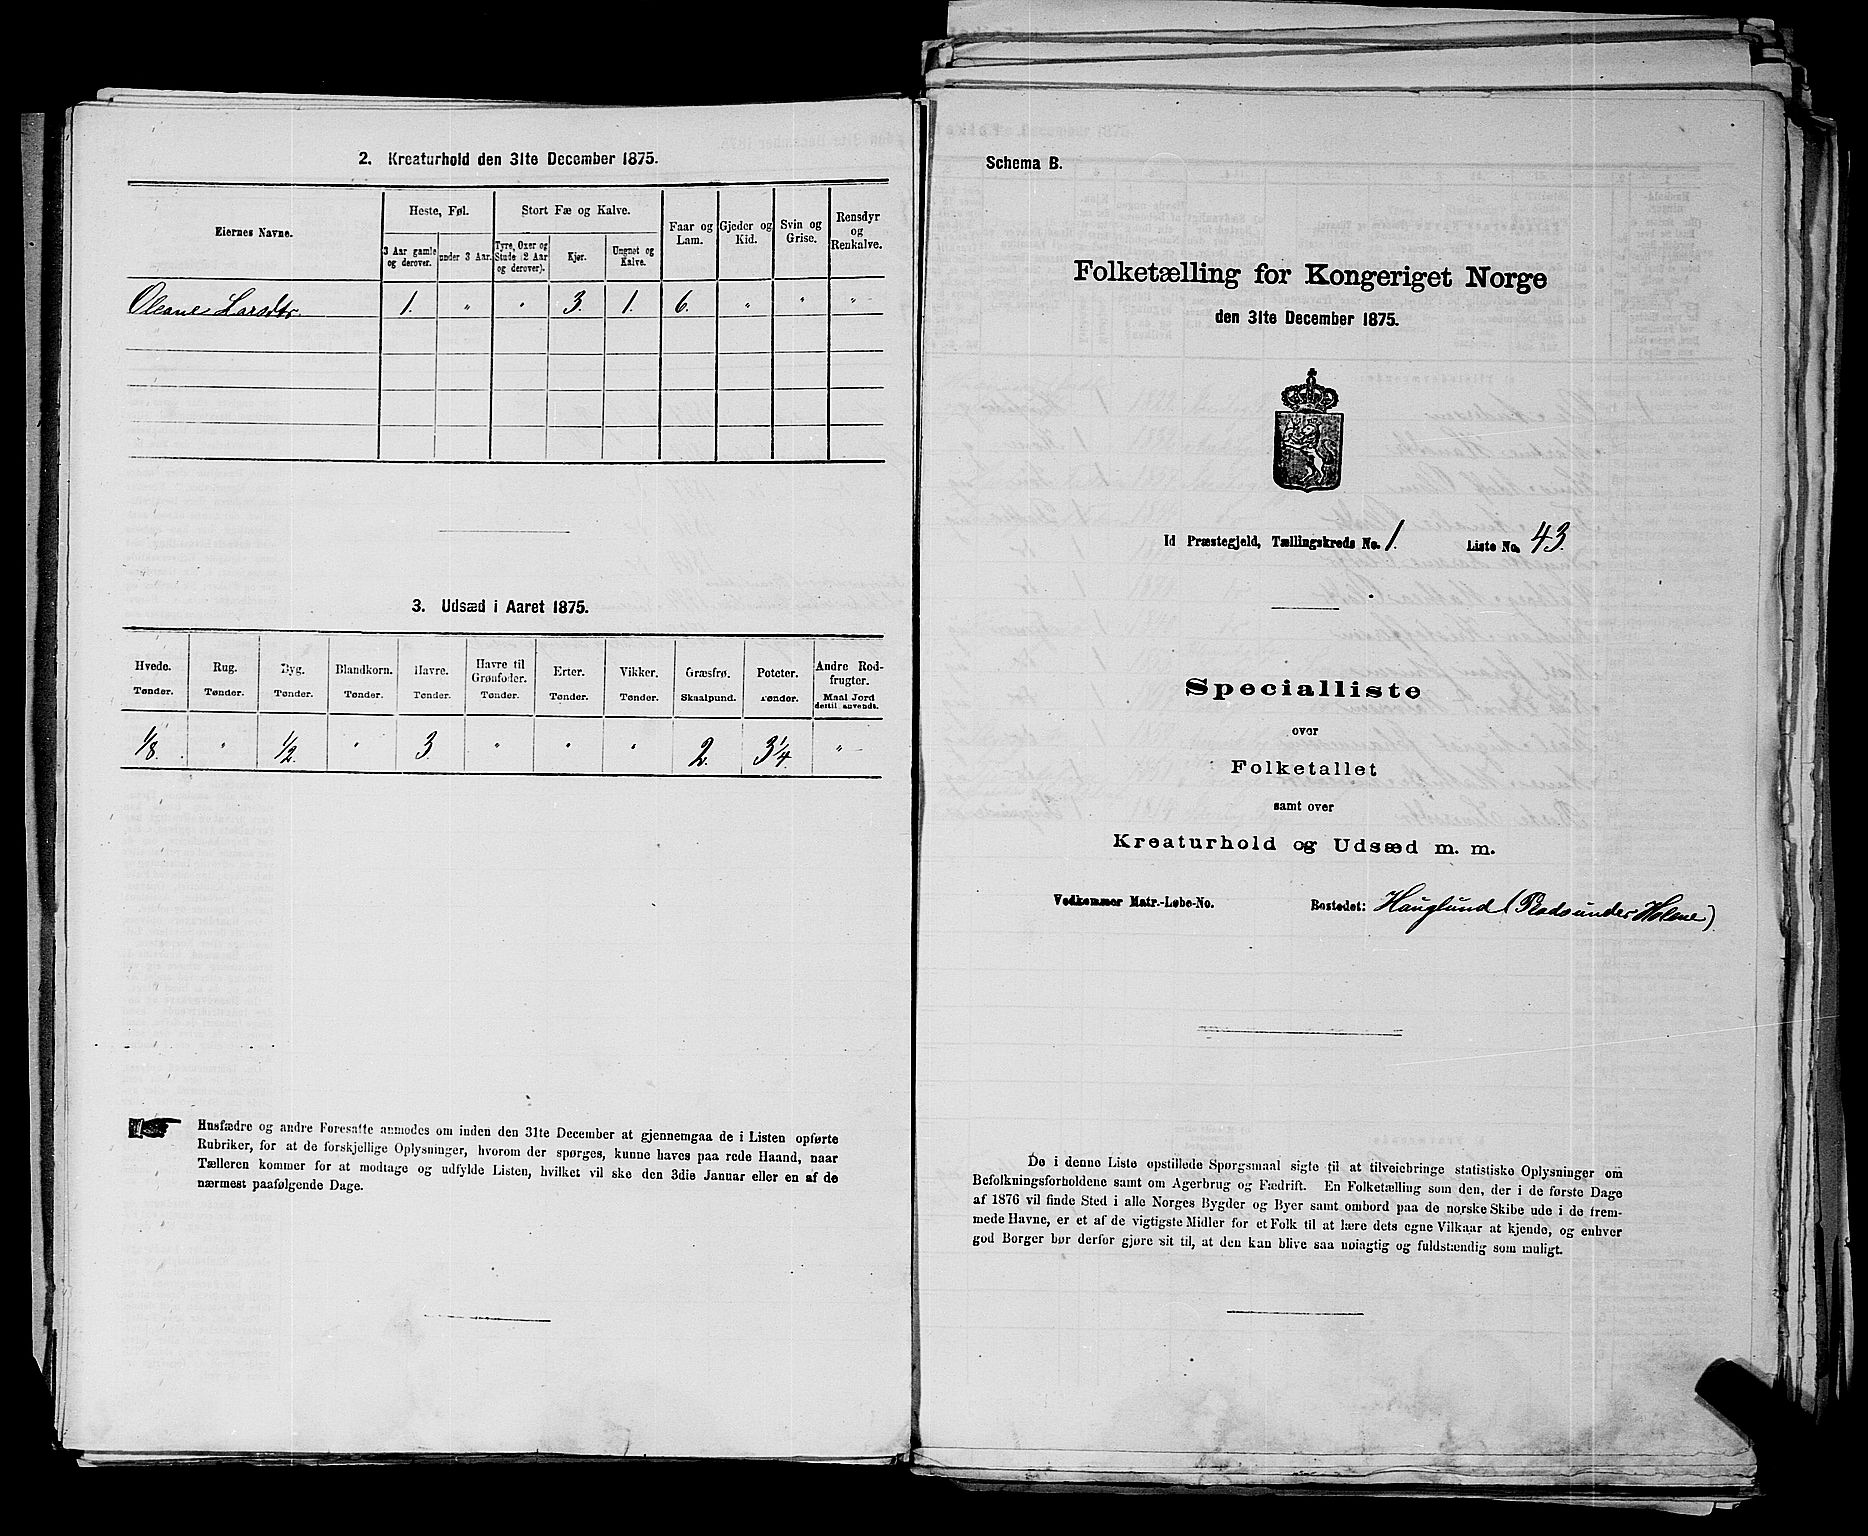 2. Kreaturhold den 31te December 1875.
Eiernes Navne.
Heste, Føl.
Stort Fæ og Kalve.
Faar og Lam.
Gjeder og Kid.
Svin og Grise.
Rensdyr og Renkalve.
3 Aar gamle og derover.
under 3 Aar.
Tyre, Oxer og Stude (2 Aar og derover).
Kjør.
Ungnøt og Kalve.
Oleane Larsdtr. 1. " " 3. 1. 6. " " "
3. Udsæd i Aaret 1875.
Hvede. Rug. Byg. Blandkorn. Havre. Havre til Grønfoder. Erter. Vikker. Græsfrø. Poteter. Andre Rodfrugter.
Tønder. Tønder. Tønder. Tønder. Tønder. Tønder. Tønder. Tønder. Skaalpund. Tønder. Maal Jord dertil anvendt.
1/8. " 1/2. " 3. " " " 2. 3 1/4. "
Husfædre og andre Foresatte anmodes om inden den 31te December at gjennemgaa de i Listen opførte
Rubriker, for at de forskjellige Oplysninger, hvorom der spørges, kunne haves paa rede Haand, naar
Tælleren kommer for at modtage og udfylde Listen, hvilket vil ske den 3die Januar eller en af de
nærmest paafølgende Dage.
Schema B.
Folketælling for Kongeriget Norge
den 31te December 1875.
Id Præstegjeld, Tællingskreds No. 1. Liste No. 43.
Specialliste
over
Folketallet
samt over
Kreaturhold og Udsæd m. m.
Vedkommer Matr.-Løbe-No. Bostedet: Hauglund (Plads under Holme)
De i denne Liste opstillede Spørgsmaal sigte til at tilveiebringe statistiske Oplysninger om
Befolkningsforholdene samt om Agerbrug og Fædrift. En Folketælling som den, der i de første Dage
af 1876 vil finde Sted i alle Norges Bygder og Byer samt ombord paa de norske Skibe ude i de frem-
mede Havne, er et af de vigtigste Midler for et Folk til at lære dets egne Vilkaar at kjende, og enhver
god Borger bør derfor gjøre sit til, at den kan blive saa nøiagtig og fuldstændig som muligt.